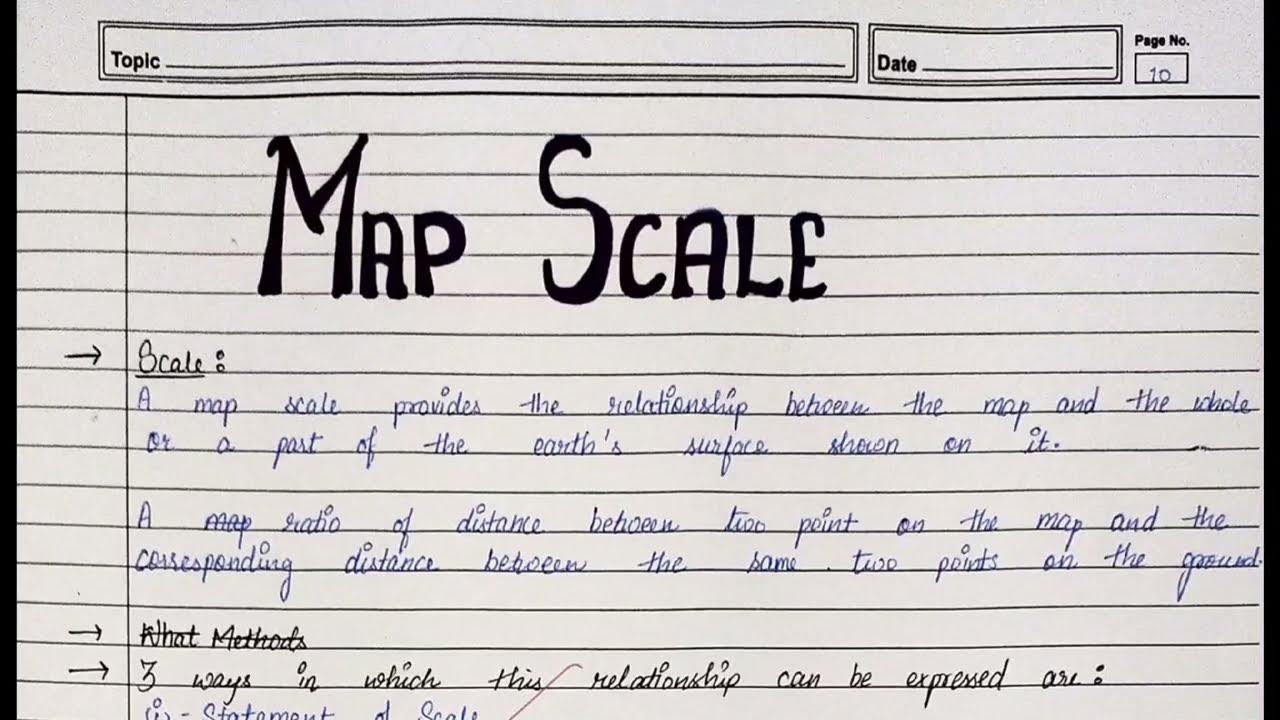 Topic
Date
Page No.
10
MAP SCALE
→ Scale:
A map scale provides the relationship between the map and the whole
or a part of the earth's surface shown on it.
A map ratio of distance between two point on the map and the
corresponding distance between the same two points on the ground.
→ What Methods
→ 3 ways in which this relationship can be expressed are:
(i)- Statement of Scale